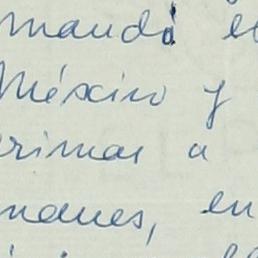 mandó el
México y
rimar a
nanes, en